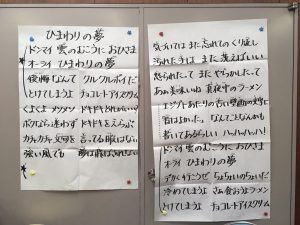 ひまわりの夢
ドンマイ 雲のむこうに おひさま
オーライ ひまわりの夢
後悔なんて クルクルポイだ
とけてしまうよ チョコレートアイスクリーム
くよくよ メソメソ ドキドキ
ボクなら迷わず ドキドキをえらぶ
カチャカチャ 文句を 言ってる暇はない
強い風でも 夢は
気づいては また 忘れての くり返し
汚れた手は また 洗えばいい
怒られたって また やらかしたって
あぁ 美味いね 真夜中のラーメン
エジプトあたりの古い壁画の文字に
昔はよかった。 なんてことなんかも
書いてあるらしい ハハハハハ!
ドンマイ 雲のむこうに おひさま
オーライ ひまわりの夢
でかくそうぜ ちょちょいのちょいだ
冷めてしまうよ さぁ食おうよ ラーメン
とけてしまうよ チョコレートアイスクリーム